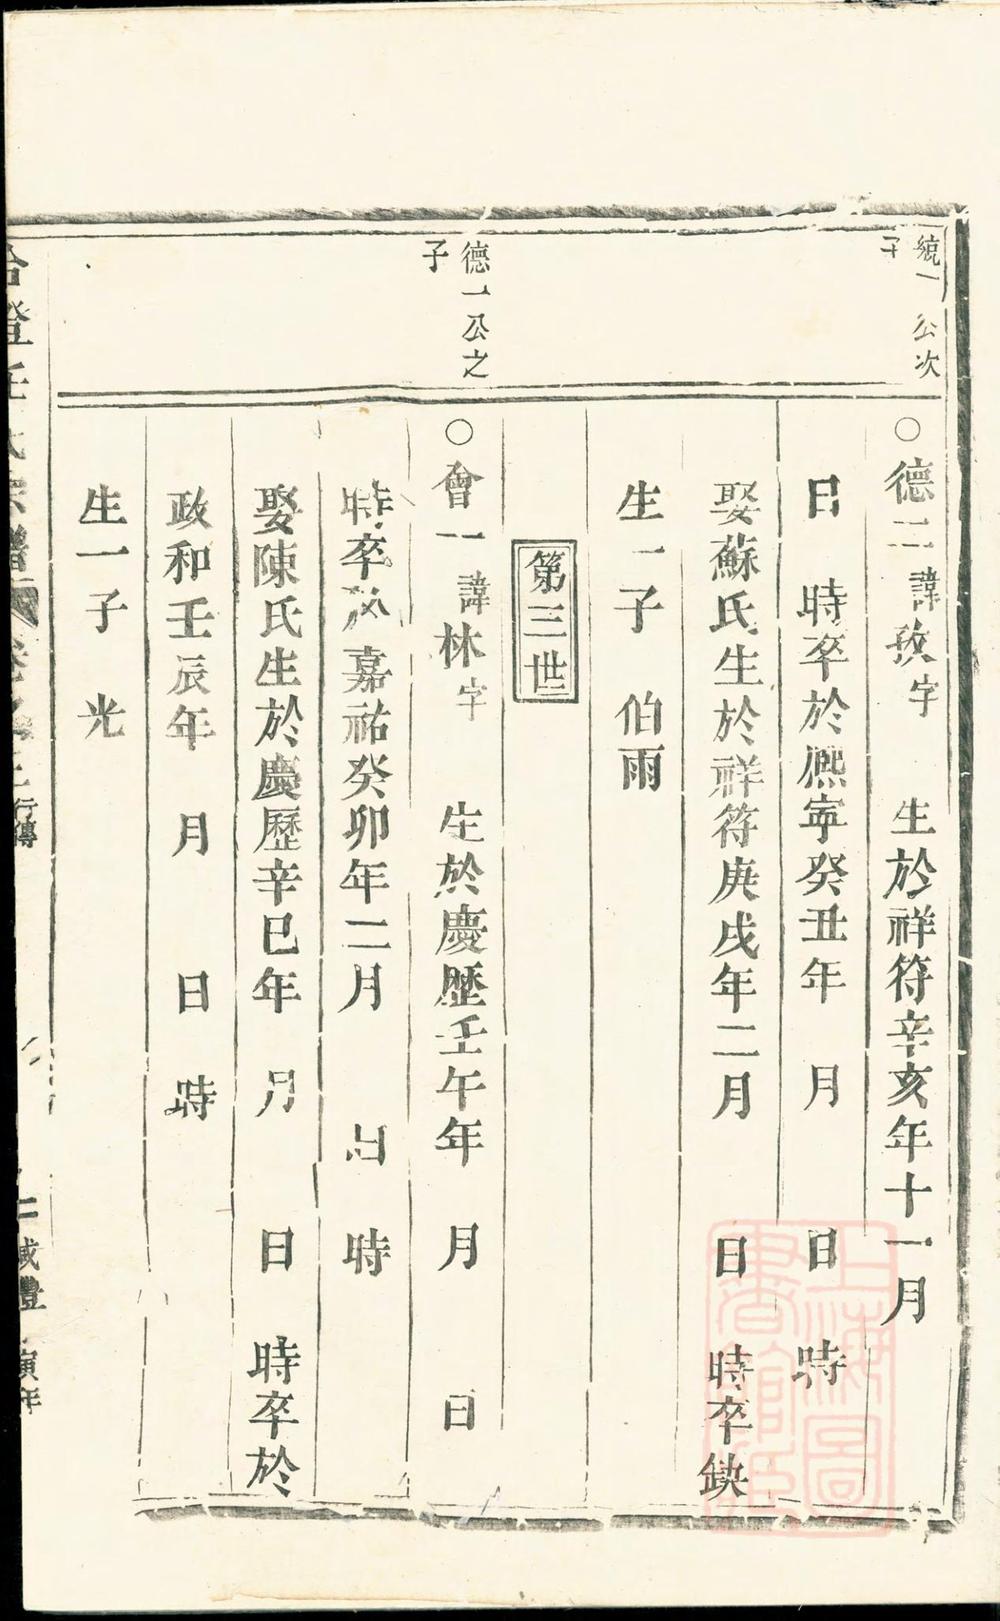 統一公次
子
○德二諱孜字　生於祥符辛亥年十一月
日　時卒於熈寧癸丑年　月　日　時
娶蘇氏生於祥符庚戌年二月　日　時卒缺
生一子　伯雨
第三世
德一公之
子
○會一諱林字　生於慶歷壬午年　月　日
時卒於嘉祐癸卯年二月　日　時
娶陳氏生於慶歷辛巳年　月　日　時卒於
政和壬辰年　月　日　時
生一子　光
行傳
二
寅年
上海圖書館藏